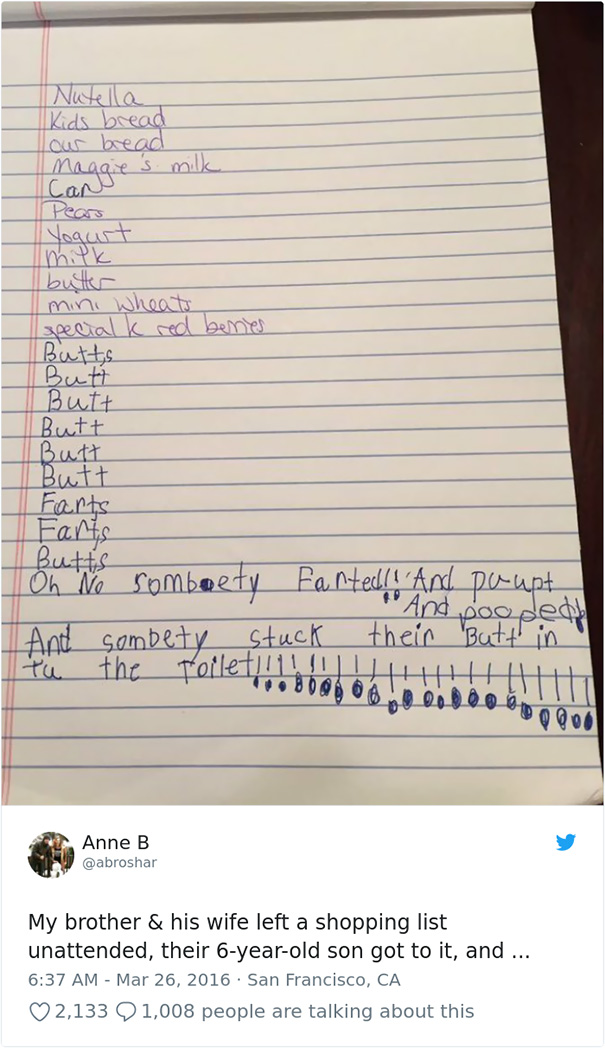 Nutella
Kids bread
our bread
Maggie's milk
Can
Pears
Yogurt
milk
butter
mini wheats
special k red berries
Butts
Butt
Butt
Butt
Butt
Butt
Farts
Farts
Butts
Oh No sombety Farted!! And pu-upt
And pooped!
And sombety stuck their Butt in
tu the toilet!!!!!!!!!!!!!!!!!!!!!!!
Anne B
@abroshar
My brother & his wife left a shopping list
unattended, their 6-year-old son got to it, and ...
6:37 AM - Mar 26, 2016 · San Francisco, CA
2,133 1,008 people are talking about this